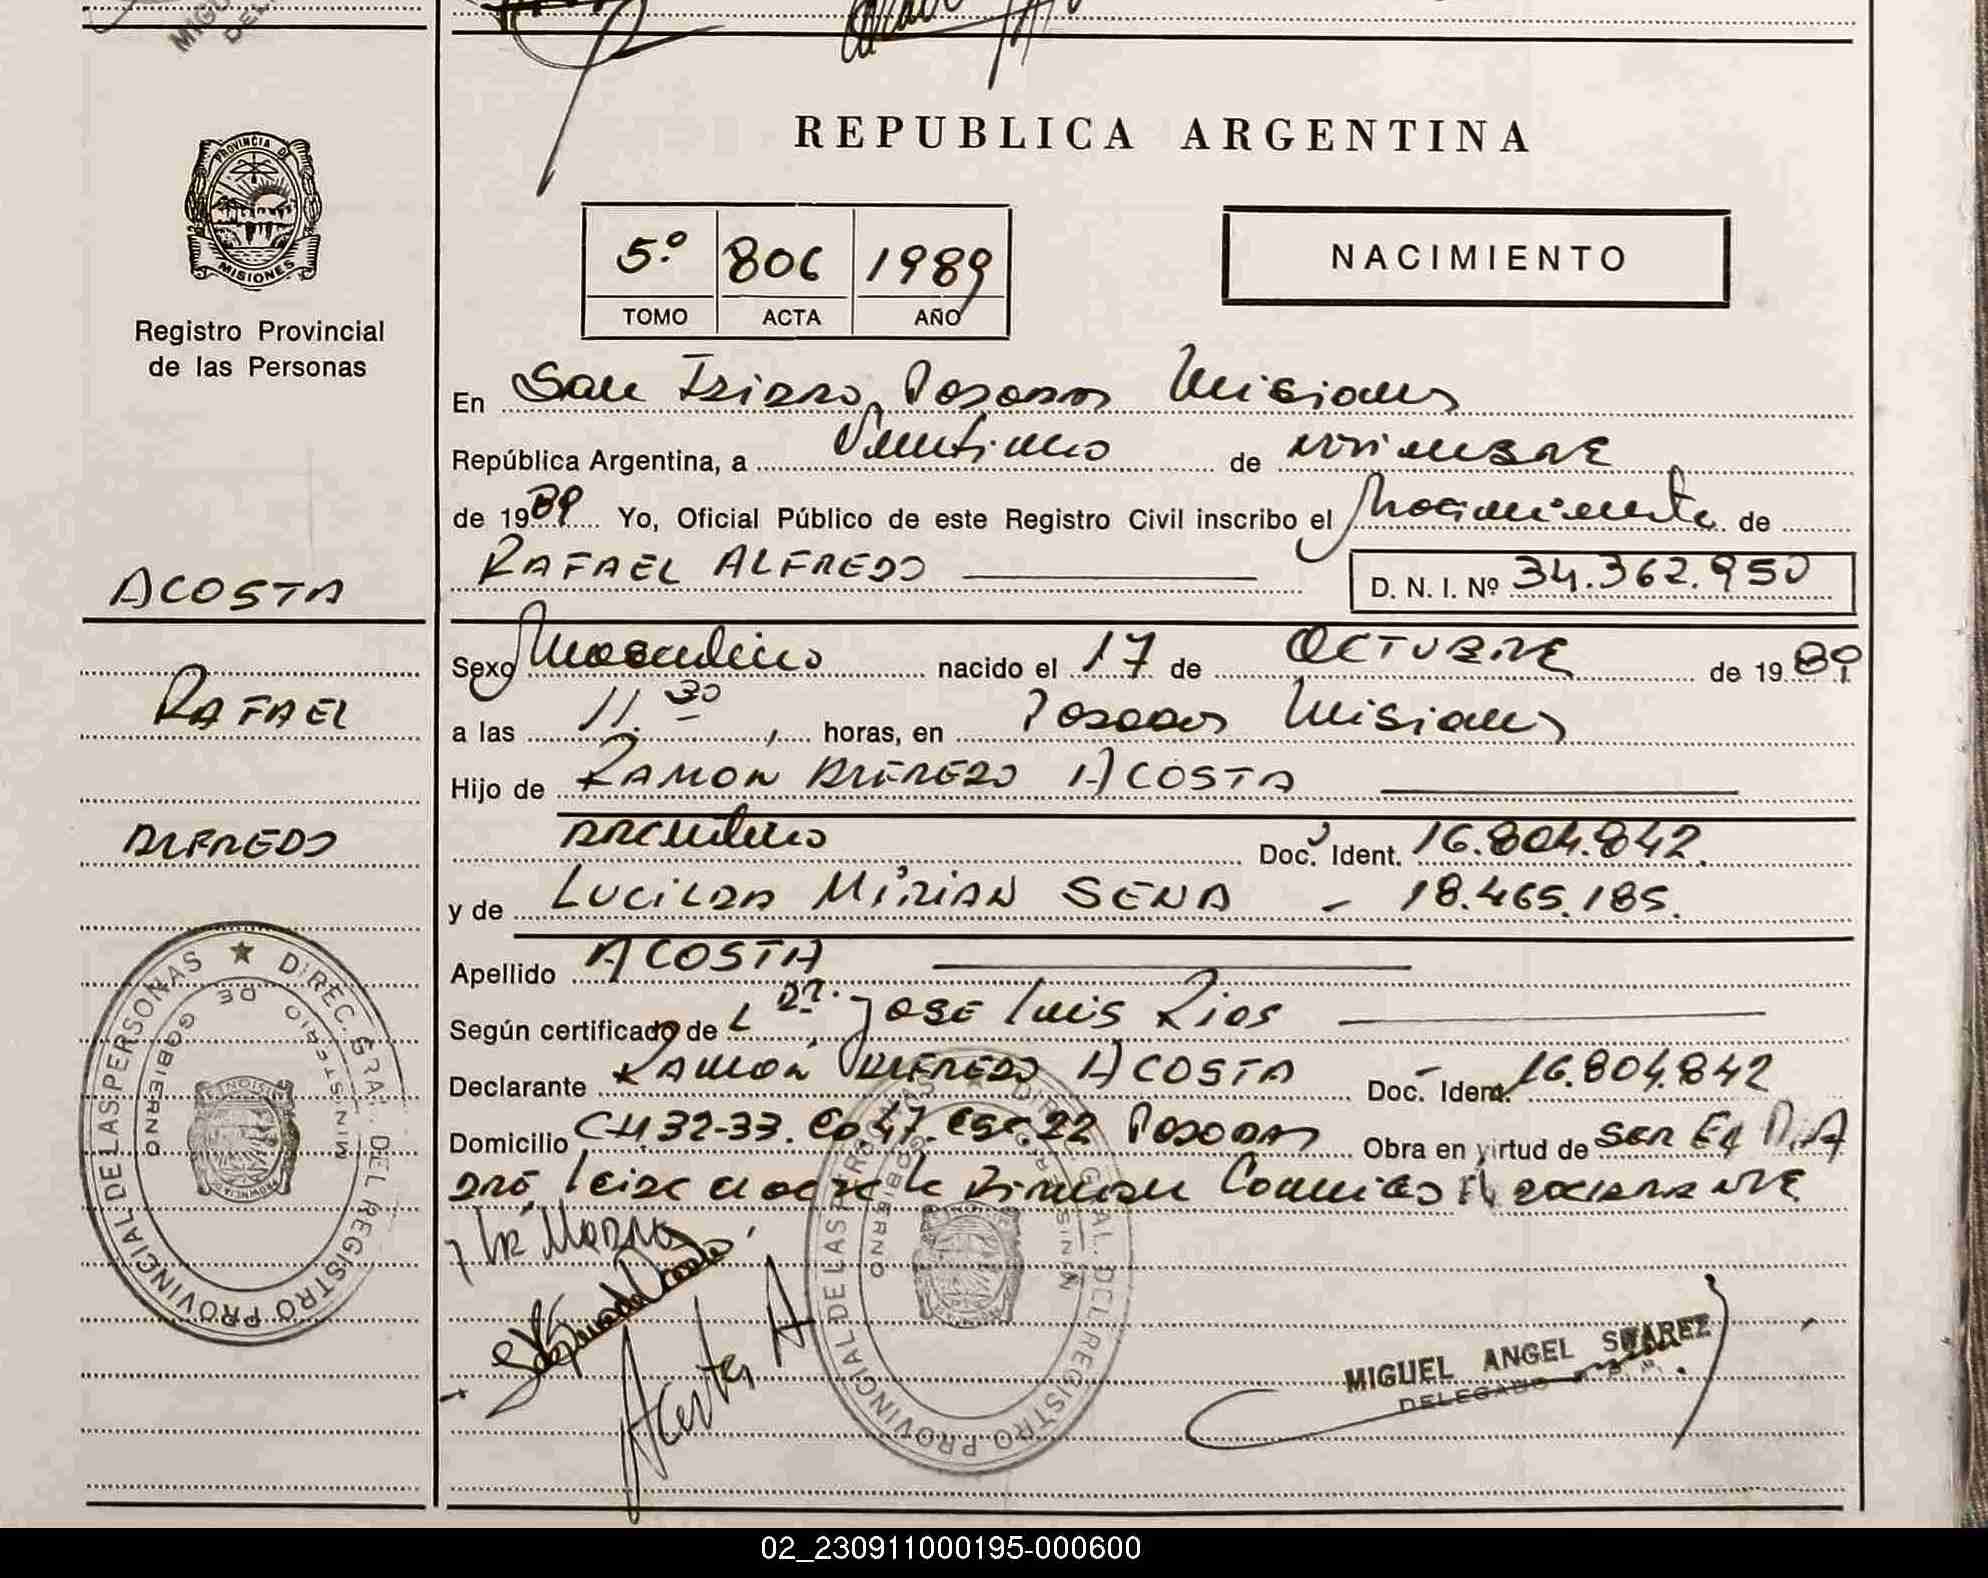 PROVINCIA D
MISIONES
Registro Provincial
de las Personas
ACOSTA
RAFAEL
ALFREDO
DIREC. GRAL. DEL REGISTRO PROVINCIAL DE LAS PERSONAS
MINISTERIO DE GOBIERNO
REPUBLICA ARGENTINA
5º 806 1989
TOMO ACTA AÑO
NACIMIENTO
En San Isidro, Posadas Misiones
República Argentina, a de noviembre
de 1989 Yo, Oficial Público de este Registro Civil inscribo el Nacimiento de
RAFAEL ALFREDO D. N. I. Nº 34.362.950
Sexo Masculino nacido el 17 de OCTUBRE de 1989
a las 11.30 horas, en Posadas Misiones
Hijo de RAMON ALFREDO ACOSTA
argentino Doc. Ident. 16.804.842.
y de LUCILDA MIRIAN SENA - 18.465.185.
Apellido ACOSTA
Según certificado de Dr. Jose Luis Rios
Declarante RAMÓN ALFREDO ACOSTA Doc. Ident. 16.804.842
Domicilio CH. 32-33. Posadas Obra en virtud de ser EL
leida el acta la firman Conmigo el declarante
y la Madre
Acosta A
DIREC. GRAL. DEL REGISTRO PROVINCIAL DE LAS PERSONAS
MINISTERIO DE GOBIERNO
MIGUEL ANGEL SUAREZ
DELEGADO
02_230911000195-000600